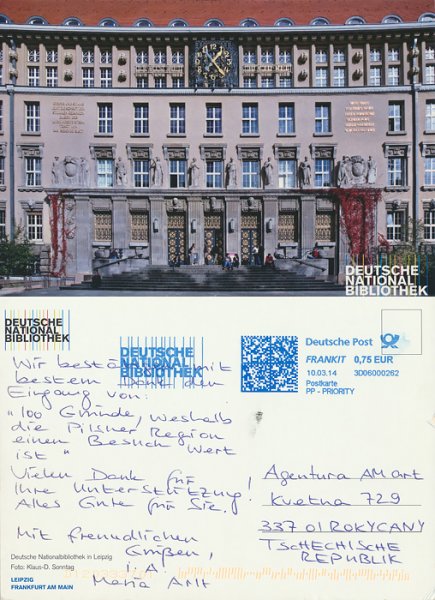 DEUTSCHE
NATIONAL
BIBLIOTHEK
DEUTSCHE
NATIONAL
BIBLIOTHEK
DEUTSCHE
NATIONAL
BIBLIOTHEK
Deutsche Post
FRANKIT 0,75 EUR
10.03.14 3D06000262
Postkarte
PP - PRIORITY
Wir bestätigen mit
bestem Dank den
Eingang von:
"100 Gründe, weshalb
die Pilsner Region
einen Besuch wert
ist"
Vielen Dank für
Ihre Unterstützung!
Alles Gute für Sie.
Mit freundlichen
Grüßen,
i.A.
Maria Allt
Agentura AM art
Kvetna 729
337 01 ROKYCANY
TSCHECHISCHE
REPUBLIK
Deutsche Nationalbibliothek in Leipzig
Foto: Klaus-D. Sonntag
LEIPZIG
FRANKFURT AM MAIN